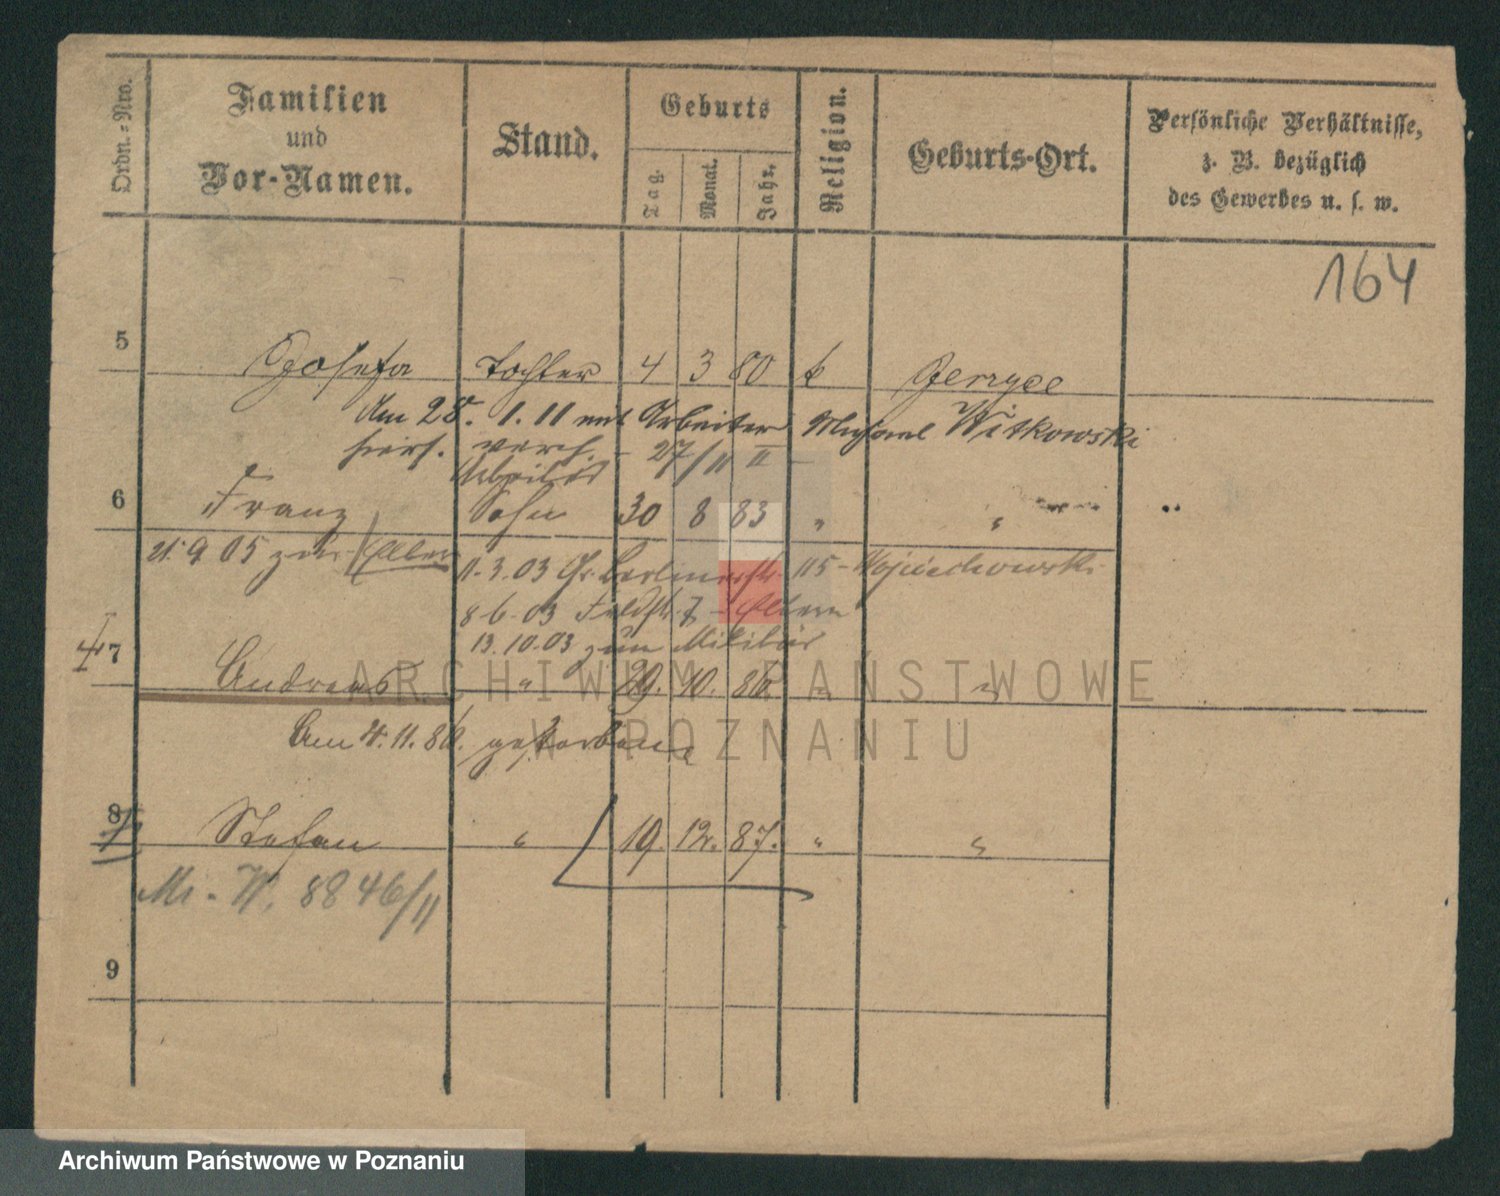 Ordn.=Nro. Familien und Vor-Namen. Stand. Geburts Tag. Monat. Jahr. Religion. Geburts-Ort. Persönliche Verhältnisse, z. B. bezüglich des Gewerbes u. s. w.
164
5 Josefa Tochter 4 3 80 k Jerzyce
Am 28. 1. 11 mit Arbeiter Michael Witkowski
hier. verh. - 27/11 II -
Arbeiter
6 Franz Sohn 30 8 83 " "
21 9 05 zu Eltern
11.3.03 Gr. Berlinerstr. 115 - Wojciechowski
8 6. 03 Feldstr. 7 - Eltern
13. 10. 03 zum Militär
7 Andreas " 29. 10. 86. " "
Am 4. 11. 86. gestorben.
8 Stefan " 19. 12. 87. " "
Mi. - W. 8846/11
9
ARCHIWUM PAŃSTWOWE
W POZNANIU
Archiwum Państwowe w Poznaniu